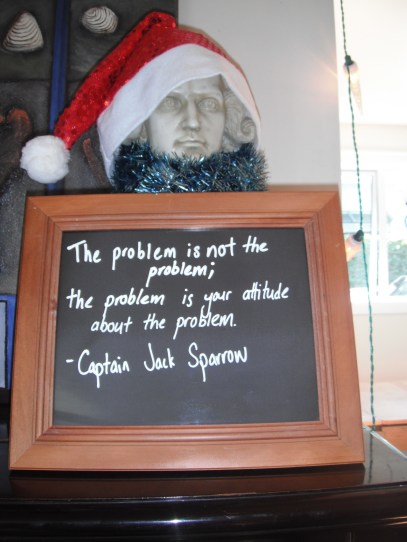 The problem is not the
problem;
the problem is your attitude
about the problem.
- Captain Jack Sparrow